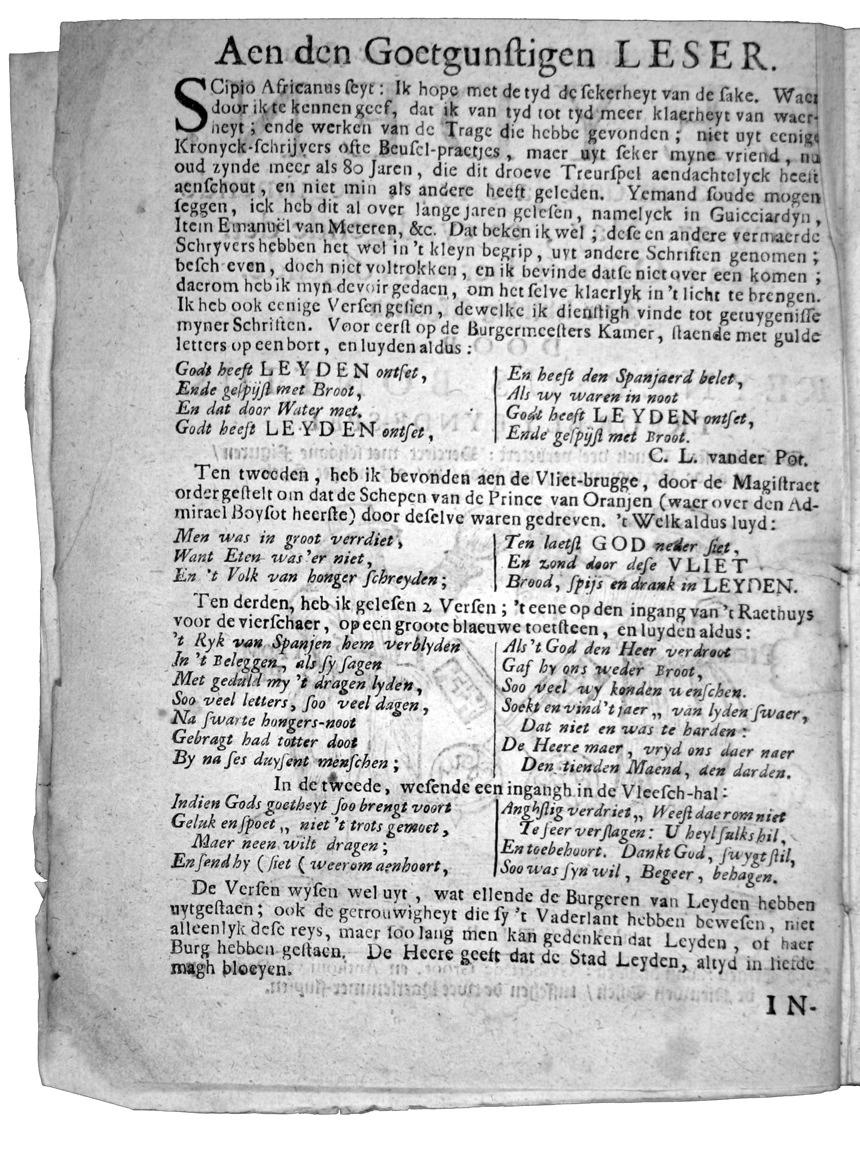 Aen den Goetgunſtigen LESER.
SCipio Africanus ſeyt: Ik hope met de tyd de ſekerheyt van de ſake. Waer
door ik te kennen geef, dat ik van tyd tot tyd meer klaerheyt van waer-
heyt; ende werken van de Trage die hebbe gevonden; niet uyt eenige
Kronyck-ſchrijvers ofte Beuſel-praetjes, maer uyt ſeker myne vriend, nu
oud zynde meer als 80 Jaren, die dit droeve Treurſpel aendachtelyck heeft
aenſchout, en niet min als andere heeft geleden. Yemand ſoude mogen
ſeggen, ick heb dit al over lange jaren geleſen, namelyck in Guicciardyn,
Item Emanuël van Meteren, &c. Dat beken ik wel; deſe en andere vermaerde
Schryvers hebben het wel in 't kleyn begrip, uyt andere Schriften genomen;
beſch even, doch niet voltrokken, en ik bevinde datſe niet over een komen;
daerom heb ik myn devoir gedaen, om het ſelve klaerlyk in 't licht te brengen.
Ik heb ook eenige Verſen geſien, dewelke ik dienſtigh vinde tot getuygeniſſe
myner Schriften. Voor eerſt op de Burgermeeſters Kamer, ſtaende met gulde
letters op een bort, en luyden aldus:
Godt heeft LEYDEN ontſet,
Ende geſpijſt met Broot,
En dat door Water met.
Godt heeft LEYDEN ontſet,
En heeft den Spanjaerd belet,
Als wy waren in noot
Godt heeft LEYDEN ontſet,
Ende geſpijſt met Broot.
C. L. vander Pot.
Ten tweeden, heb ik bevonden aen de Vliet-brugge, door de Magiſtraet
order geſtelt om dat de Schepen van de Prince van Oranjen (waer over den Ad-
mirael Boyſot heerſte) door deſelve waren gedreven. 't Welk aldus luyd:
Men was in groot verrdiet,
Want Eten was'er niet,
En 't Volk van honger ſchreyden;
Ten laetſt GOD neder ſiet,
En zond door deſe VLIET
Brood, ſpijs en drank in LEYDEN.
Ten derden, heb ik geleſen 2 Verſen; 't eene op den ingang van 't Raethuys
voor de vierſchaer, op een groote blaeuwe toetſteen, en luyden aldus:
't Ryk van Spanjen hem verblyden
In 't Beleggen, als ſy ſagen
Met geduld my 't dragen lyden,
Soo veel letters, ſoo veel dagen,
Na ſwarte hongers-noot
Gebragt had totter doot
By na ſes duyſent menſchen;
Als 't God den Heer verdroot
Gaf hy ons weder Broot,
Soo veel wy konden wenſchen.
Soekt en vind 't jaer „ van lyden ſwaer,
Dat niet en was te harden:
De Heere maer, vryd ons daer naer
Den tienden Maend, den darden.
In de tweede, weſende een ingangh in de Vleeſch-hal:
Indien Gods goetheyt ſoo brengt voort
Geluk en ſpoet „ niet 't trots gemoet,
Maer neen wilt dragen;
En ſend hy (ſiet ( weerom aenhoort,
Anghſtig verdriet „ Weeſt daerom niet
Te ſeer verſlagen: U heyl ſulks hil,
En toebehoort. Dankt God, ſwygt ſtil,
Soo was ſyn wil, Begeer, behagen.
De Verſen wyſen wel uyt, wat ellende de Burgeren van Leyden hebben
uytgeſtaen; ook de getrouwigheyt die ſy 't Vaderlant hebben beweſen, niet
alleenlyk deſe reys, maer ſoo lang men kan gedenken dat Leyden, of haer
Burg hebben geſtaen. De Heere geeft dat de Stad Leyden, altyd in liefde
magh bloeyen.
IN-